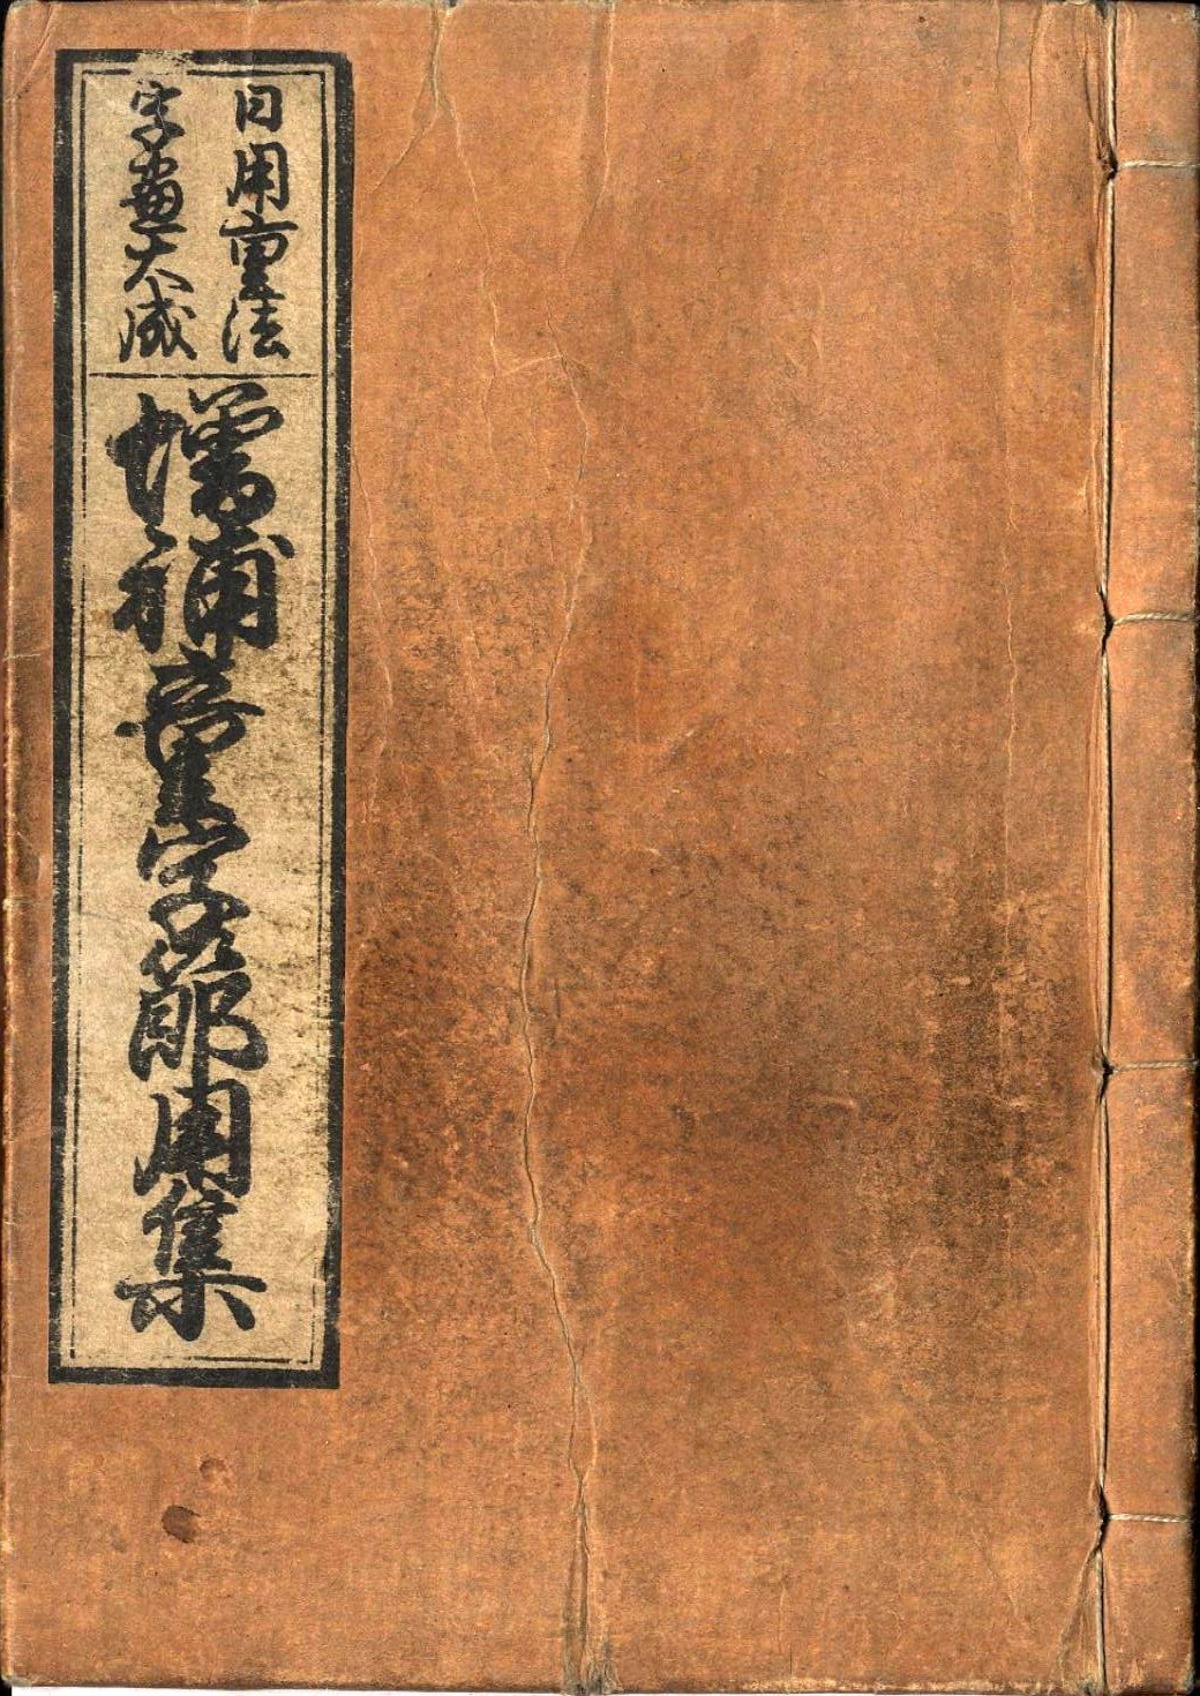 日用重法
字畫大成
増補童字節用集